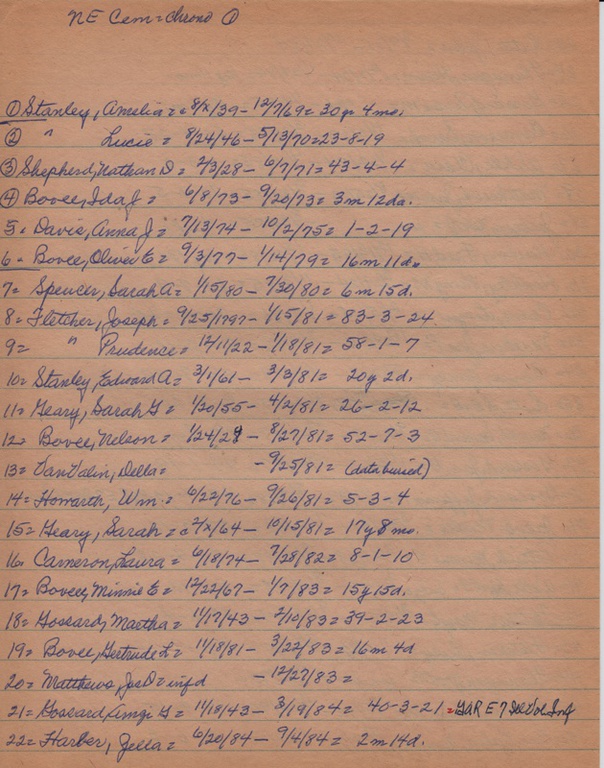 NE Cem = Chrono ①
① Stanley, Amelia = c 8/x/39 - 12/7/69 = 30y 4mo.
② " Lucie = 8/24/46 - 5/13/70 = 23-8-19
③ Shepherd, Nathan D = 2/3/28 - 6/7/71 = 43-4-4
④ Bovee, Ida J = 6/8/73 - 9/20/73 = 3m 12da.
5 = Davis, Anna J = 7/13/74 - 10/2/75 = 1-2-19
6 = Bovee, Oliver E = 9/3/77 - 1/14/79 = 16m 11da
7 = Spencer, Sarah A = 1/15/80 - 7/30/80 = 6m 15d.
8 = Fletcher, Joseph = 9/25/1797 - 1/15/81 = 83-3-24
9 = " Prudence = 12/11/22 - 1/18/81 = 58-1-7
10 = Stanley, Edward A = 3/1/61 - 3/3/81 = 20y 2d.
11 = Geary, Sarah G = 1/20/55 - 4/2/81 = 26-2-12
12 = Bovee, Nelson = 1/24/29 - 8/27/81 = 52-7-3
13 = VanValin, Della = - 9/25/81 = (date buried)
14 = Howarth, Wm = 6/22/76 - 9/26/81 = 5-3-4
15 = Geary, Sarah = c 2/x/64 - 10/15/81 = 17y 8mo.
16 = Cameron, Laura = 6/18/74 - 7/28/82 = 8-1-10
17 = Bovee, Minnie E = 12/22/67 - 1/7/83 = 15y 15d.
18 = Gossard, Martha = 11/17/43 - 2/10/83 = 39-2-23
19 = Bovee, Gertrude L = 11/18/81 - 3/22/83 = 16m 4d
20 = Matthews, Jos D = inf d - 12/27/83 =
21 = Gossard, G = 11/18/43 - 3/19/84 = 40-3-21 = GAR E 7 Ill Vol. Inf
22 = Harber, Zella = 6/20/84 - 9/4/84 = 2m 14d.